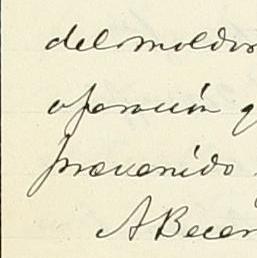 del moldor
operación q
prevenido
A Becer